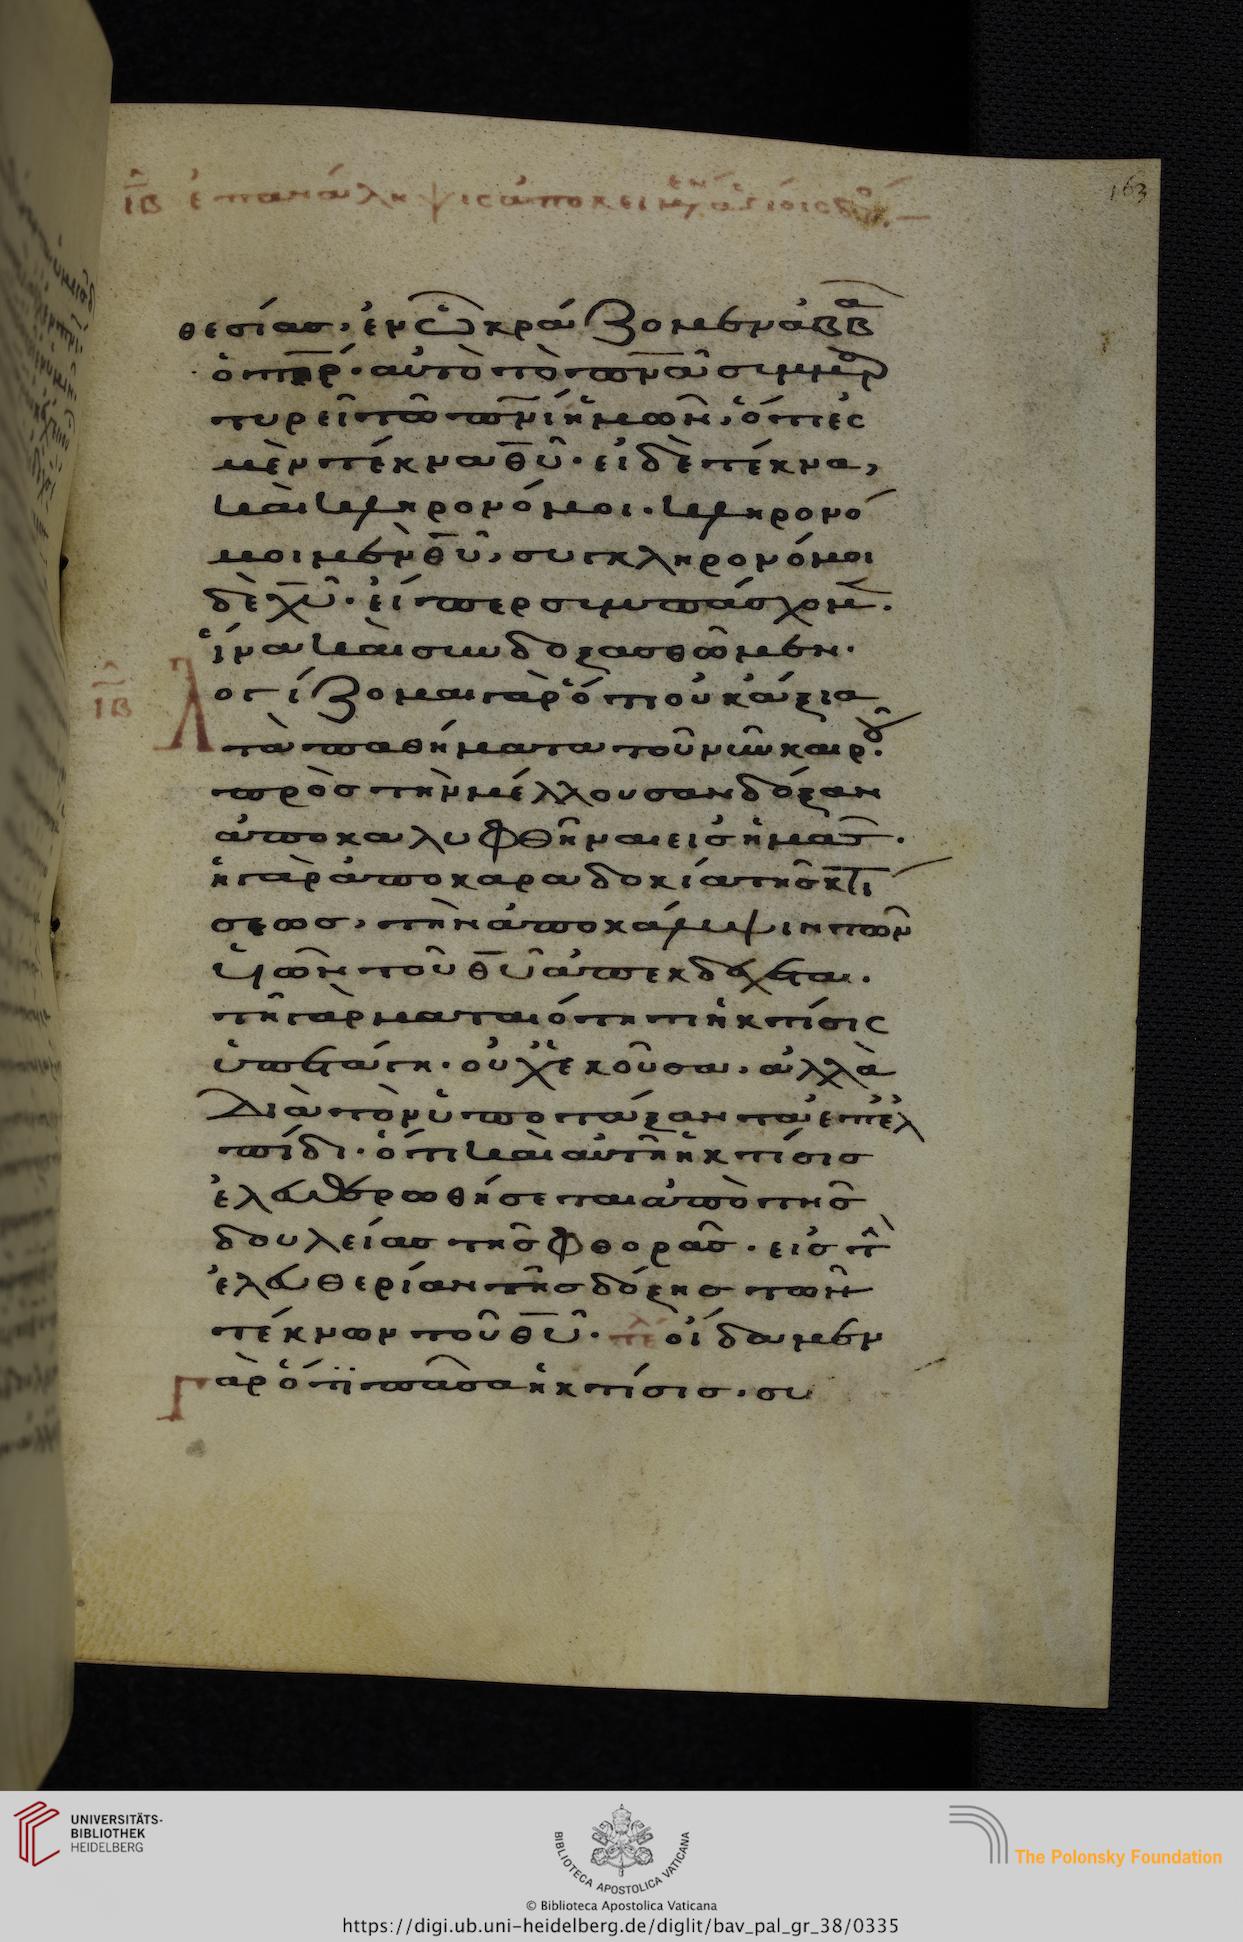 163
θεσίασ, ἐν ὧ κράζομεν ἀββᾶ
ὁ πηρ. αὐτὸ τὸ πνᾶ συμμαρ
τυρεῖ τῶ πνι ἡμῶν, ὅτι ἐσ
μὲν τέκνα θῦ. εἰ δὲ τέκνα,
καὶ κληρονόμοι. κληρονό
μοι μὲν θῦ, συγκληρονόμοι
δὲ χῦ. εἴπερ συμπάσχομεν.
ἵνα καὶ συνδοξασθῶμεν.
ιβ Λογίζομαι γὰρ ὅτι οὐκ ἄξια
τὰ παθήματα τοῦ νῦν καιροῦ.
πρὸσ τὴν μέλλουσαν δόξαν
ἀποκαλυφθῆναι εἰσ ἡμᾶσ.
ἡ γὰρ ἀποκαραδοκία τῆσ κτί
σεωσ, τὴν ἀποκάλυψιν τῶν
υἱῶν τοῦ θῦ ἀπεκδέχεται.
τῆ γὰρ ματαιότητι ἡ κτίσισ
ὑπετάγη. οὐχ ἑκοῦσα, ἀλλὰ
διὰ τὸν ὑποτάξαντα ἐπ ἐλ
πίδι. ὅτι καὶ αὐτὴ ἡ κτίσισ
ἐλευθερωθήσεται ἀπὸ τῆσ
δουλείασ τῆσ φθορᾶσ. εἰσ τὴν
ἐλευθερίαν τῆσ δόξησ τῶν
τέκνων τοῦ θῦ. τέ οἴδαμεν
γὰρ ὅτι πᾶσα ἡ κτίσισ. συ
UNIVERSITÄTS-
BIBLIOTHEK
HEIDELBERG
BIBLIOTECA APOSTOLICA VATICANA
The Polonsky Foundation
© Biblioteca Apostolica Vaticana
https://digi.ub.uni-heidelberg.de/diglit/bav_pal_gr_38/0335